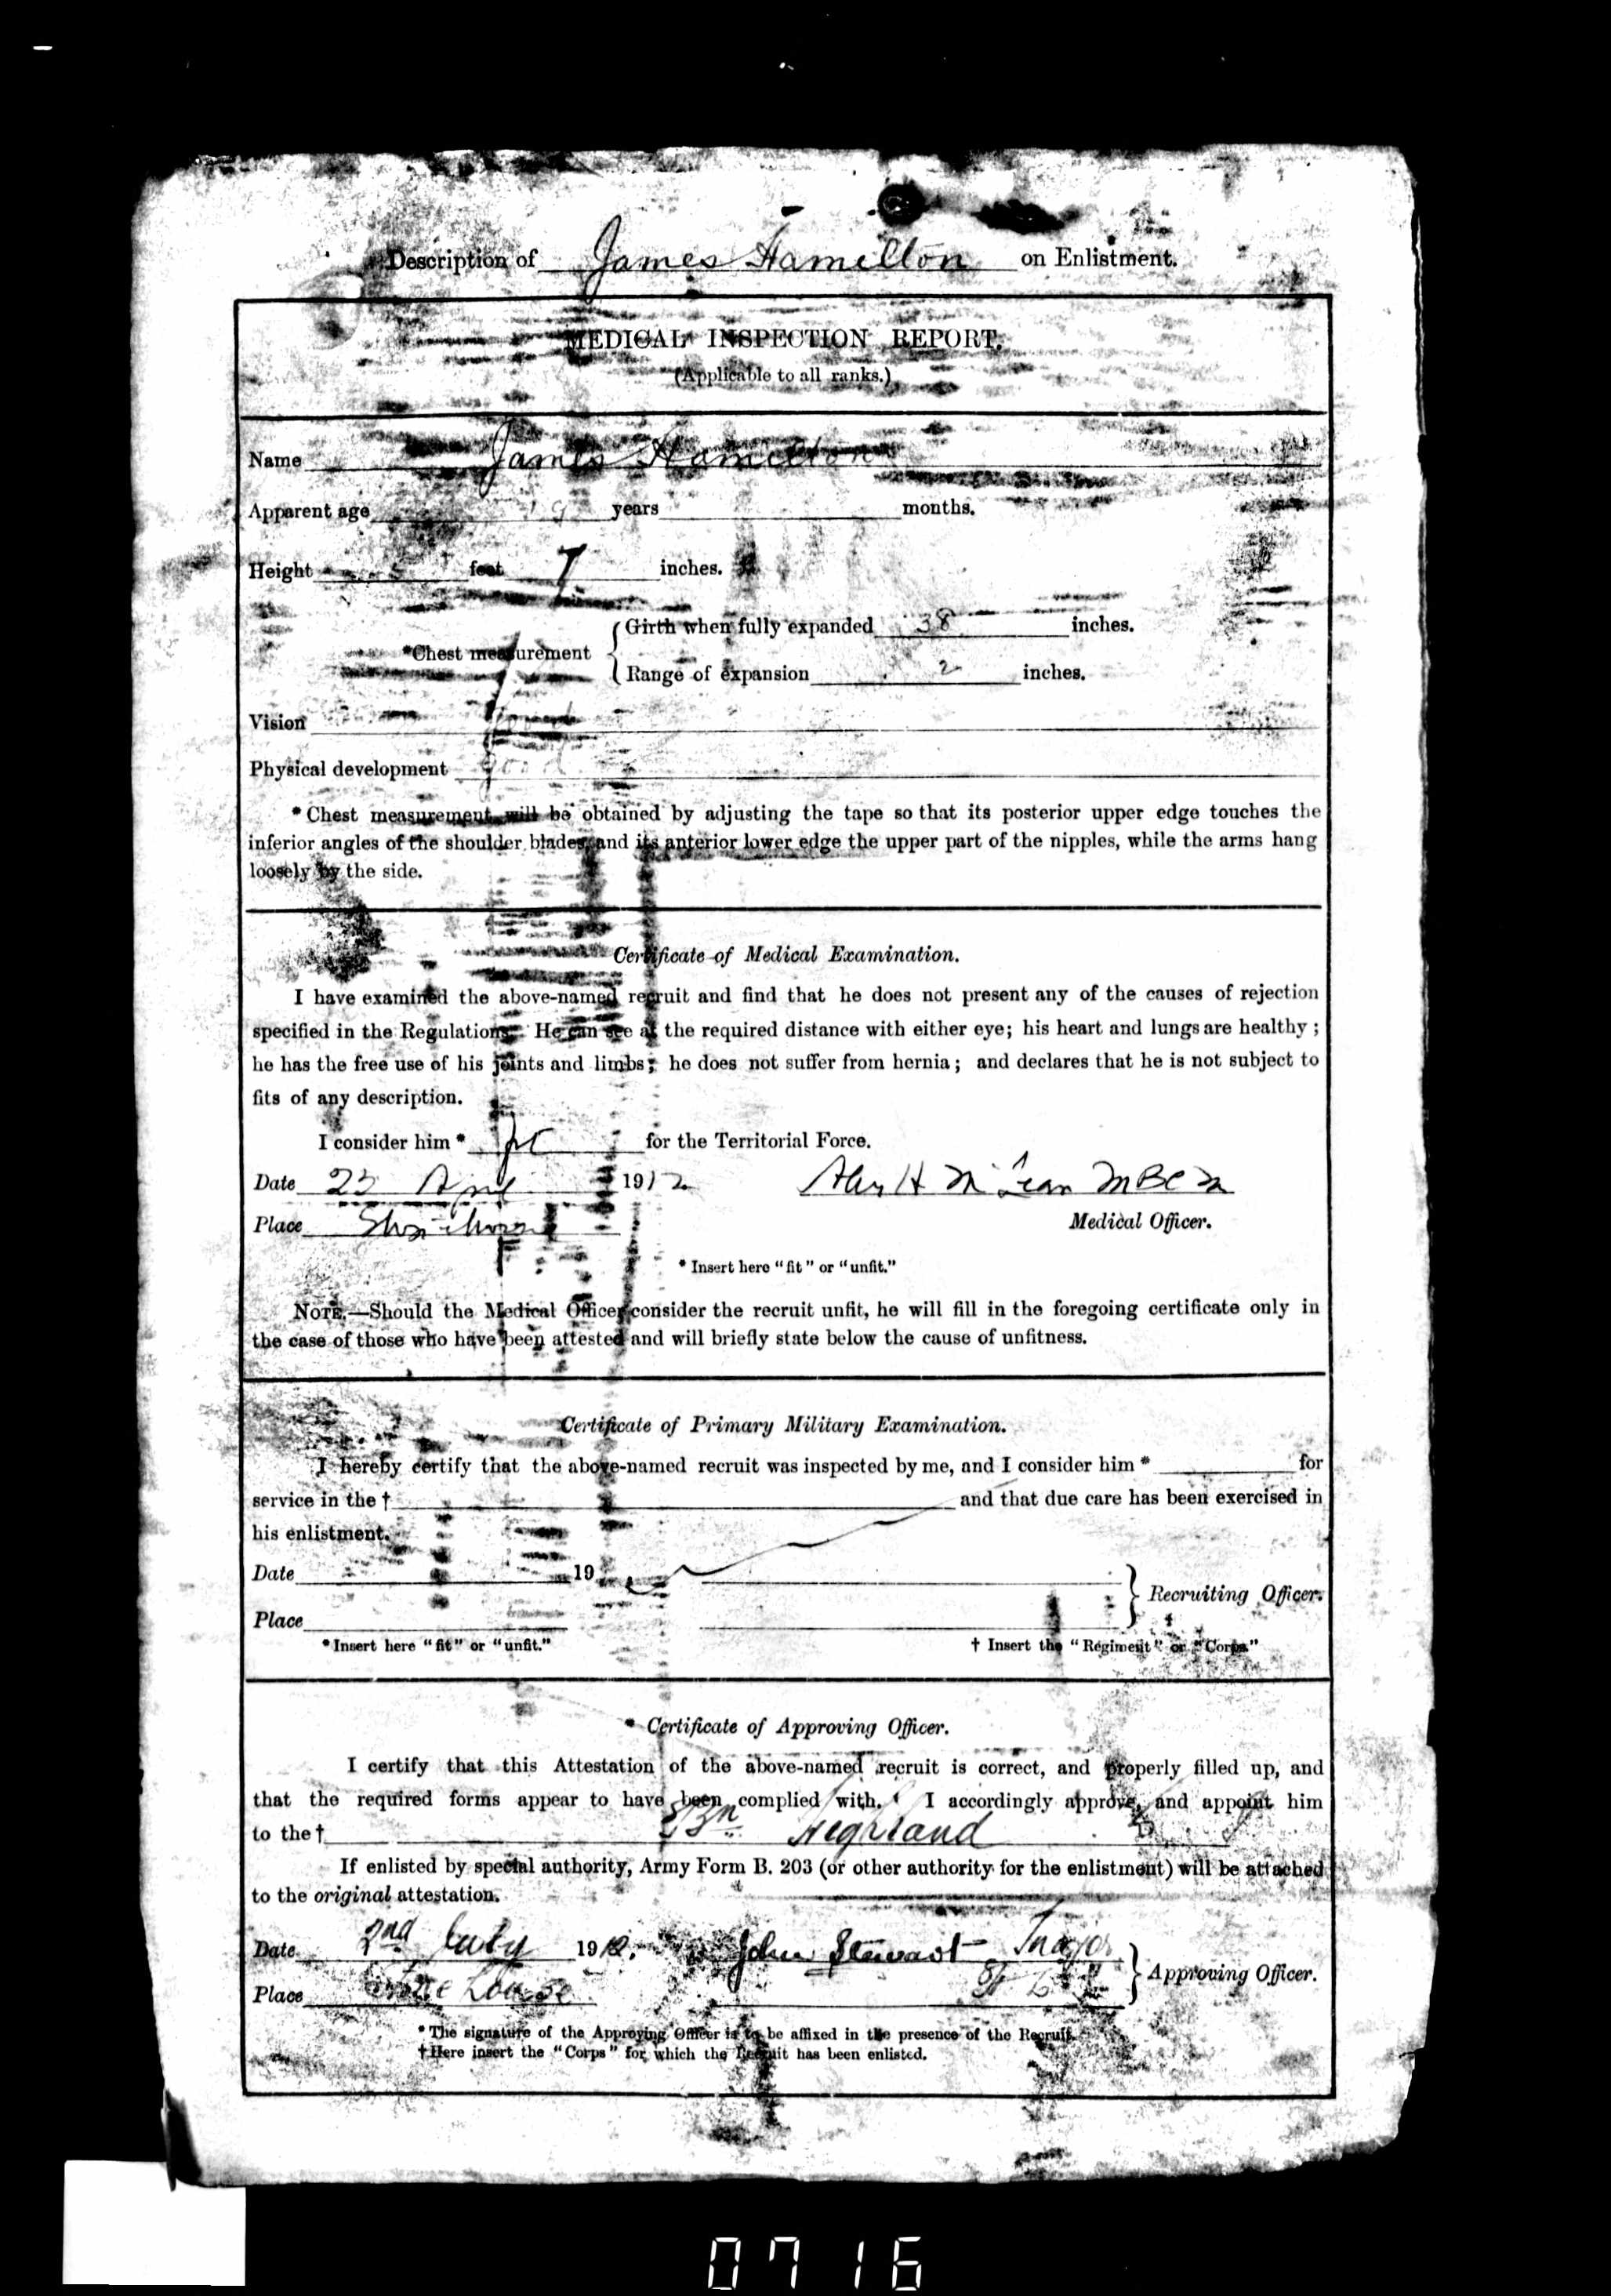 Description of James Hamilton on Enlistment.
MEDICAL INSPECTION REPORT.
(Applicable to all ranks.)
Name James Hamilton
Apparent age 19 years months.
Height 5 feet 7 inches.
Girth when fully expanded 38 inches.
*Chest measurement
Range of expansion 2 inches.
Vision good
Physical development good
* Chest measurement will be obtained by adjusting the tape so that its posterior upper edge touches the
inferior angles of the shoulder blades, and its anterior lower edge the upper part of the nipples, while the arms hang
loosely by the side.
Certificate of Medical Examination.
I have examined the above-named recruit and find that he does not present any of the causes of rejection
specified in the Regulations. He can see at the required distance with either eye; his heart and lungs are healthy;
he has the free use of his joints and limbs; he does not suffer from hernia; and declares that he is not subject to
fits of any description.
I consider him * fit for the Territorial Force.
Date April 1912
Place
Medical Officer.
* Insert here "fit" or "unfit."
NOTE.—Should the Medical Officer consider the recruit unfit, he will fill in the foregoing certificate only in
the case of those who have been attested and will briefly state below the cause of unfitness.
Certificate of Primary Military Examination.
I hereby certify that the above-named recruit was inspected by me, and I consider him * for
service in the † and that due care has been exercised in
his enlistment.
Date 19
Recruiting Officer.
Place
* Insert here "fit" or "unfit."
† Insert the "Regiment" or "Corps."
* Certificate of Approving Officer.
I certify that this Attestation of the above-named recruit is correct, and properly filled up, and
that the required forms appear to have been complied with. I accordingly approve, and appoint him
to the † Bn Highland
If enlisted by special authority, Army Form B. 203 (or other authority for the enlistment) will be attached
to the original attestation.
Date 2nd July 1912. John Stewart Major
Approving Officer.
Place
* The signature of the Approving Officer is to be affixed in the presence of the Recruit.
† Here insert the "Corps" for which the Recruit has been enlisted.
0716